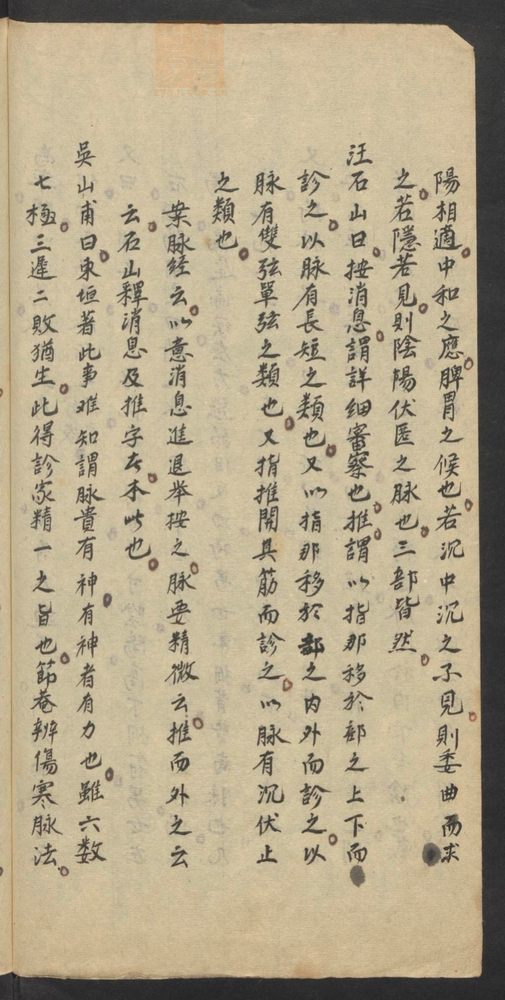 陽相適中和之應脾胃之候也若沉中沉之不見則委曲而求
之若隱若見則陰陽伏匿之脉也三部皆然
汪石山曰按消息謂詳細審察也推謂以指那移於部之上下而
診之以脉有長短之類也又以指那移於部之内外而診之以
脉有雙弦單弦之類也又指推開其筋而診之以脉有沉伏止
之類也
葉脉經云以意消息進退举按之脉要精微云推而外之云
云石山釋消息及推字去本此也
吳山甫曰東垣著此事难知謂脉貴有神有神者有力也雖六数
七極三遲二敗猶生此得診家精一之旨也節菴辨傷寒脉法